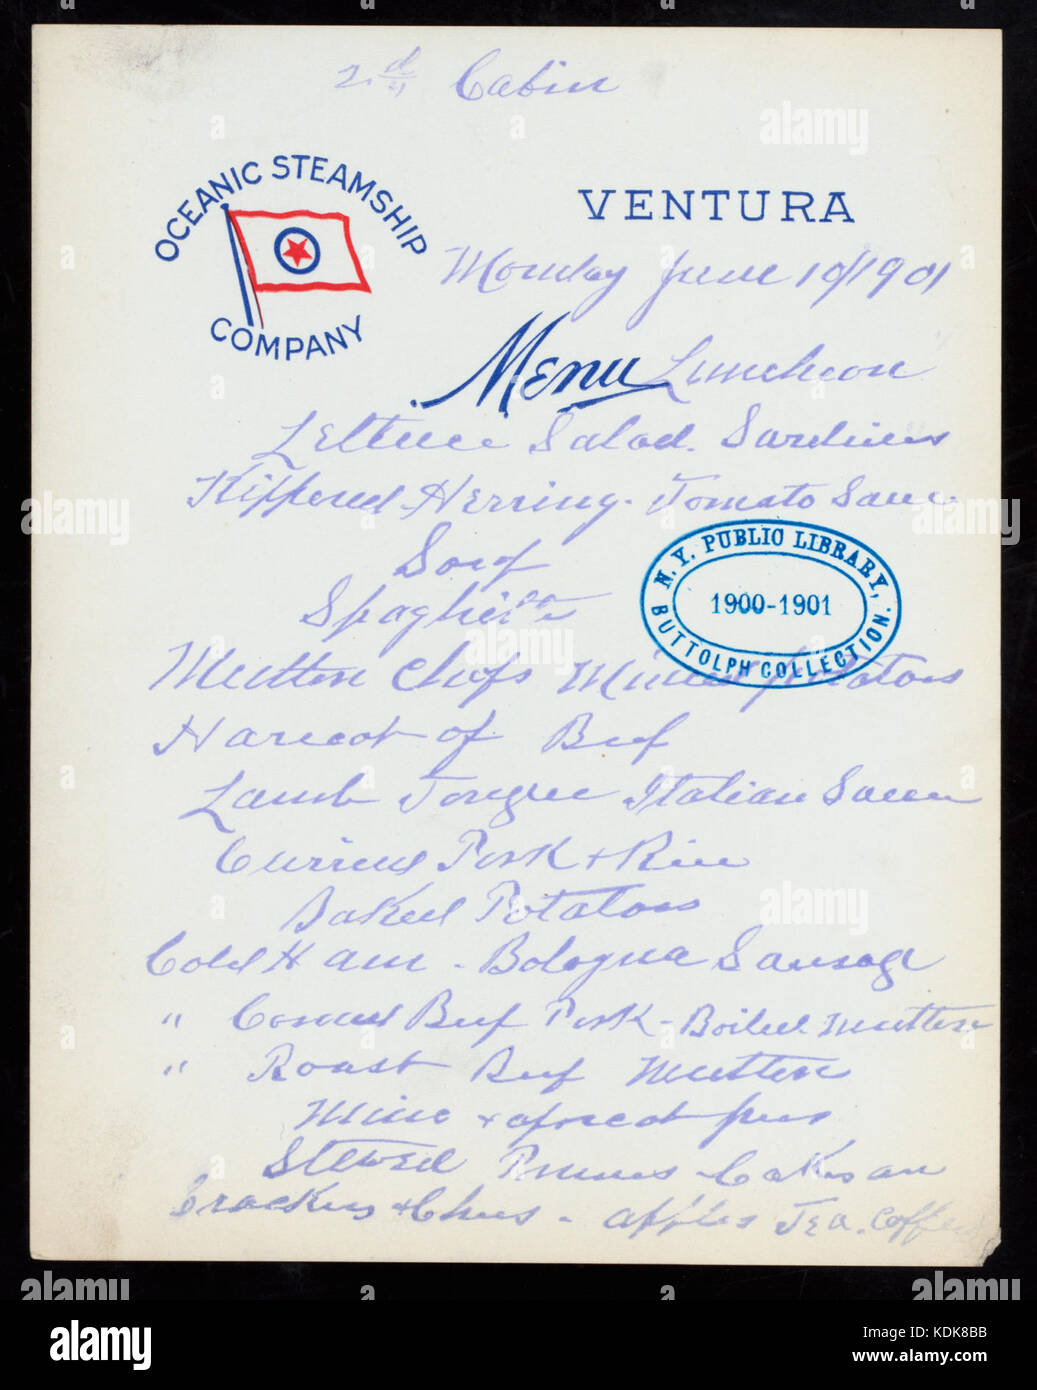 2.d Cabin
OCEANIC STEAMSHIP
COMPANY
VENTURA
Monday June 10/1901
Menu Luncheon
Lettuce Salad. Sardines
Kippered Herring. Tomato Sauce
Soup
Spaghetti
N.Y. PUBLIC LIBRARY,
1900-1901
BUTTOLPH COLLECTION.
Mutton Chops Minced Potatoes
Haricot of Beef
Lamb Tongue Italian Sauce
Curried Pork & Rice
Baked Potatoes
Cold Ham - Bologna Sausage
" Corned Beef Pork - Boiled Mutton
" Roast Beef Mutton
Mince & apricot pies
Stewed Prunes Cakes
Crackers & Chees - apples Tea. Coffee
alamy
alamy
alamy
alamy
alamy
alamy
Image ID: KDK8BB
www.alamy.com